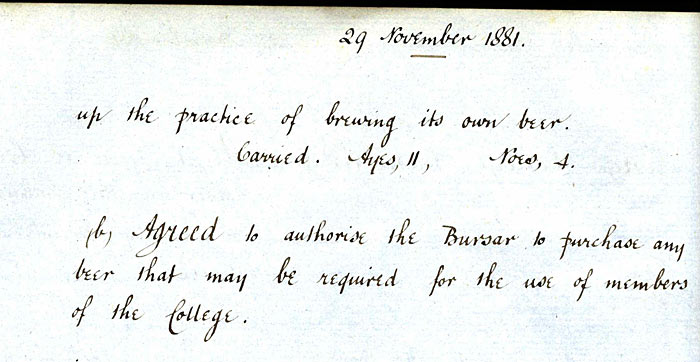 29 November 1881.
up the practice of brewing its own beer.
Carried. Ayes, 11, Noes, 4.
(b) Agreed to authorise the Bursar to purchase any
beer that may be required for the use of members
of the College.